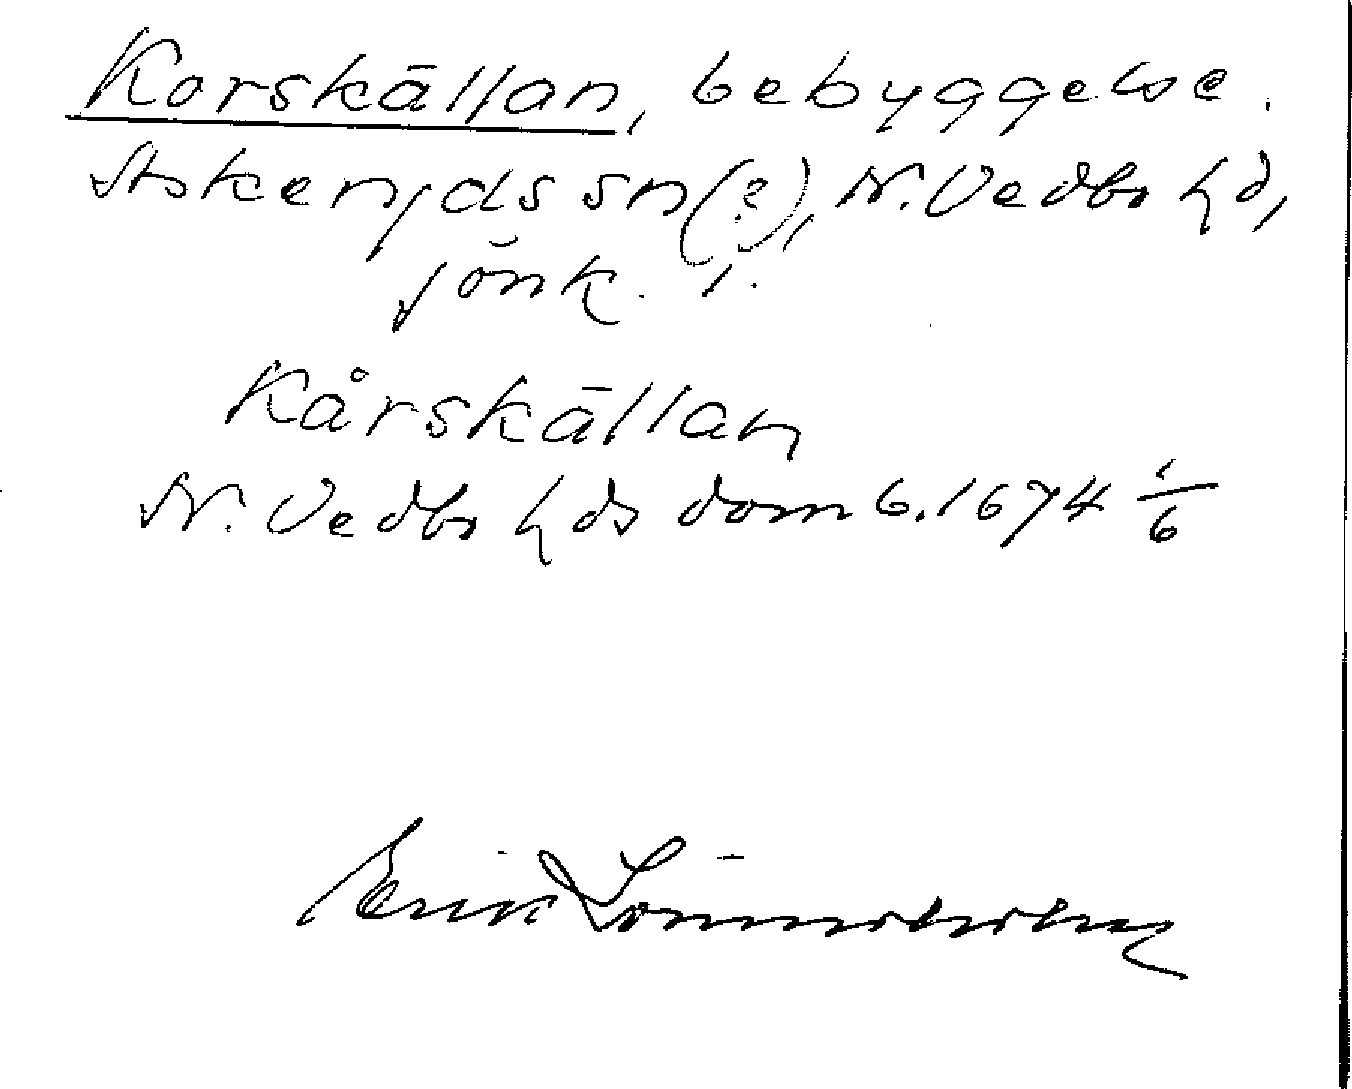 Korskällan, bebyggelse.
Askeryds sn (?), N. Vedbo hd,
Jönk. l.
Kårskällan
N. Vedbo hds domb. 1674 1/6
Erik